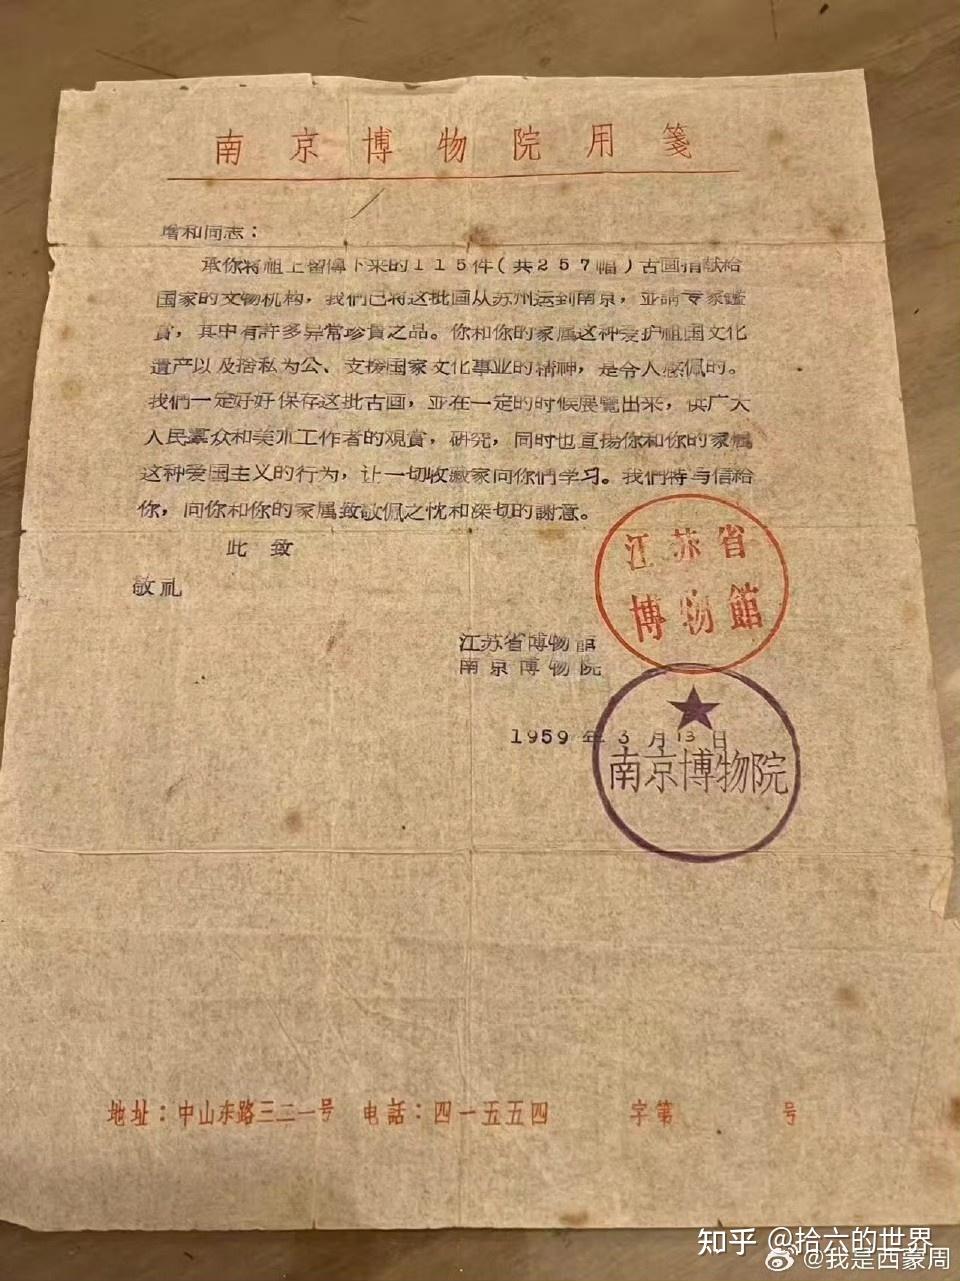 南京博物院用箋
增和同志：
承你将祖上留傳下来的115件（共257幅）古画捐献給
国家的文物机构，我們已将这批画从苏州运到南京，並請专家鑑
賞，其中有許多异常珍貴之品。你和你的家属这种爱护祖国文化
遺产以及捨私为公、支援国家文化事业的精神，是令人感佩的。
我們一定好好保存这批古画，並在一定的时候展覽出来，供广大
人民羣众和美朮工作者的观賞，研究，同时也宣揚你和你的家属
这种爱国主义的行为，让一切收藏家向你們学习。我們特与信給
你，向你和你的家属致敬佩之忱和深切的謝意。
此致
敬礼
江苏省博物館
江苏省博物館
南京博物院
1959年3月13日
南京博物院
地址：中山东路三二一号 电話：四一五五四 字第 号
知乎 @拾六的世界
@我是西蒙周